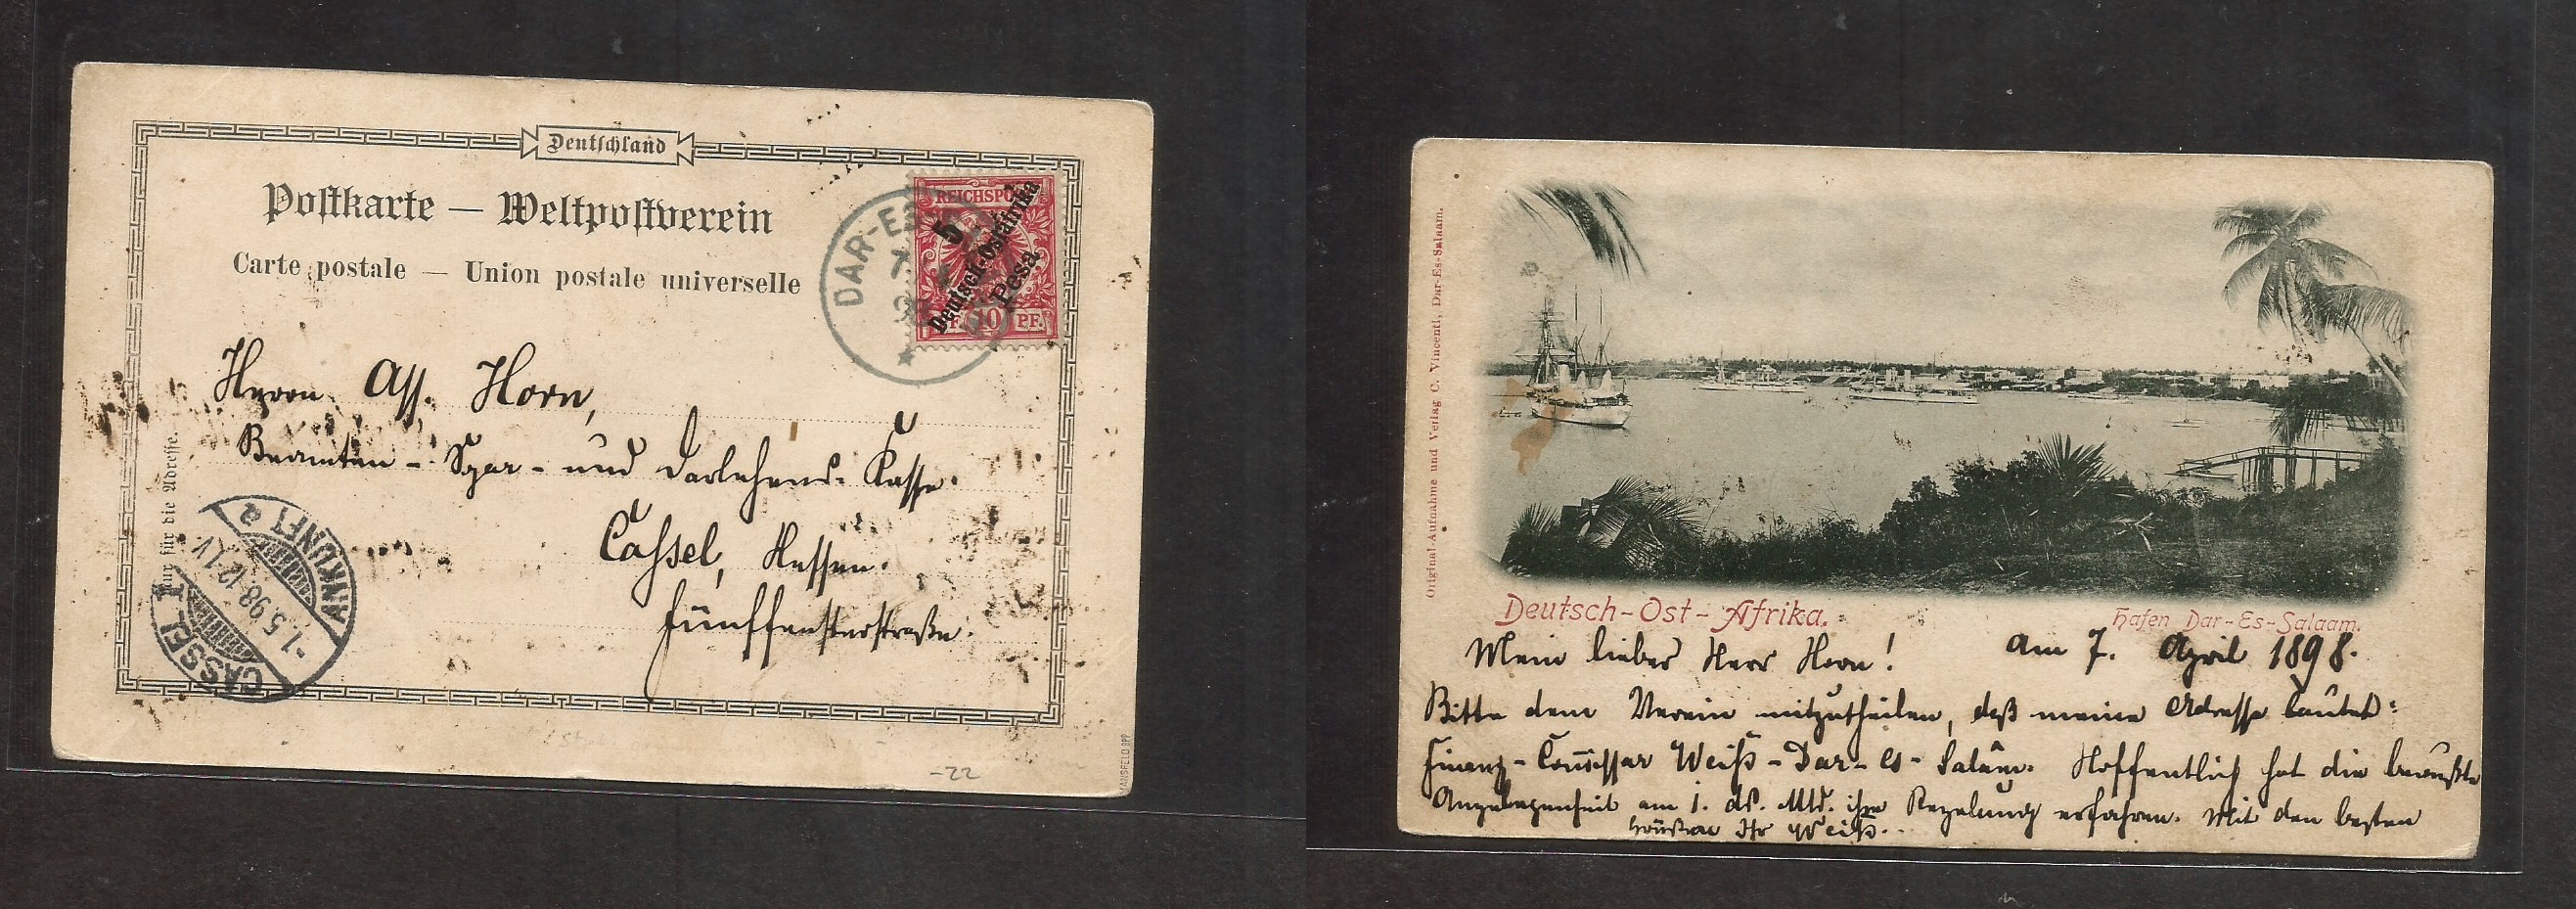 Deutschland
Postkarte — Weltpostverein
Carte postale — Union postale universelle
REICHSPOST
5
Deutsch-Ostafrika
Pesa
PF. 10 PF.
DAR-ES
7
98
Herrn Ass. Horn,
Beamten- Spar- und Darlehens-Kasse.
Cassel, Hessen.
Fünffensterstraße.
Nur für die Adresse.
CASSEL 1
-1.5.98.12-1.V
ANKUNFT a
-22
MANSFELD BPP
Original-Aufnahme und Verlag C. Vincenti, Dar-Es-Salaam.
Deutsch-Ost-Afrika.
Hafen Dar-Es-Salaam.
Mein lieber Herr Horn! am 7. April 1898.
Bitte dem Verein mitzutheilen, daß meine Adresse lautet:
Finanz-Comissar Weiß-Dar-es-Salâm. Hoffentlich hat die bewußte
Angelegenheit am 1. ds. Mts. ihre Regelung erfahren. Mit den besten
Grüßen Ihr Weiß.